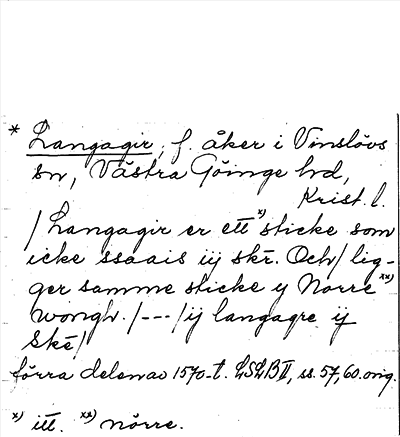 * Langagir, f. åker i Vinslövs
sn, Västra Göinge hd,
Krist. l.
/Langagir er ett x) sticke som
icke ssaais iij skr̄. Och/ lig-
ger samme sticke y Norre xx)
wongh. /---/ij langagre ÿ
Skē/
förra delen av 1570-t. LSLB II, ss. 57, 60. orig.
x) itt. xx) nörre.